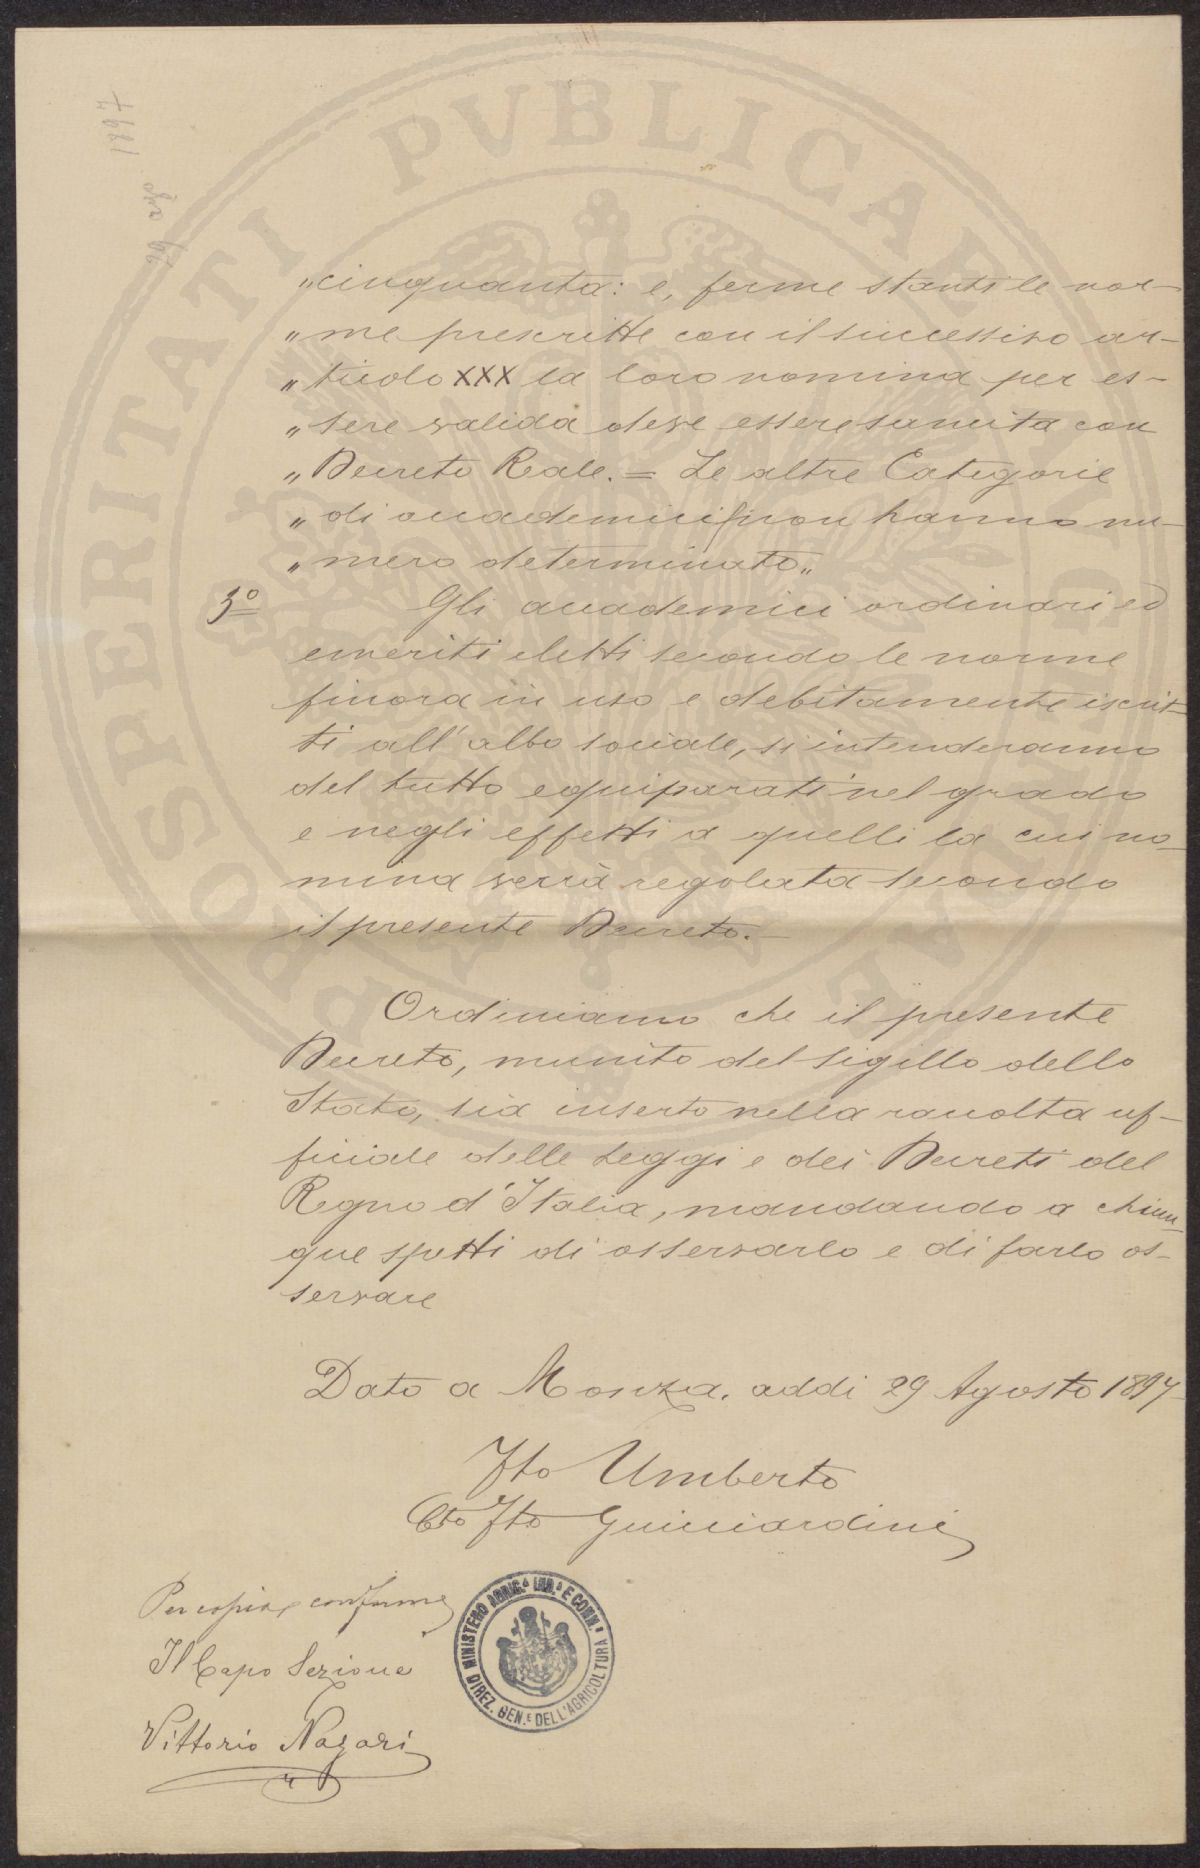 29 ago 1897
„cinquanta: e, ferme stanti le nor-
„me prescritte con il successivo ar-
„ticolo XXX la loro nomina per es-
„sere valida deve essere sancita con
„Decreto Reale. = Le altre Categorie
„di accademici non hanno nu-
„mero determinato„
3º Gli accademici ordinari ed
emeriti eletti secondo le norme
finora in uso e debitamente iscrit-
ti all'albo sociale, si intenderanno
del tutto equiparati nel grado
e negli effetti a quelli la cui no-
mina verrà regolata secondo
il presente Decreto.-
Ordiniamo che il presente
Decreto, munito del sigillo dello
Stato, sia inserto nella raccolta uf-
ficiale delle Leggi e dei Decreti del
Regno d'Italia, mandando a chiun-
que spetti di osservarlo e di farlo os-
servare
Dato a Monza. addi 29 Agosto 1897-
Fto Umberto
Cto Fto Guicciardini
Per copia conforme
Il Capo Sezione
Vittorio Nazari
MINISTERO AGRIC.A IND.A E COMM.O
DIREZ. GEN.E DELL'AGRICOLTURA
PROSPERITATI PVBLICAE AVGENDAE